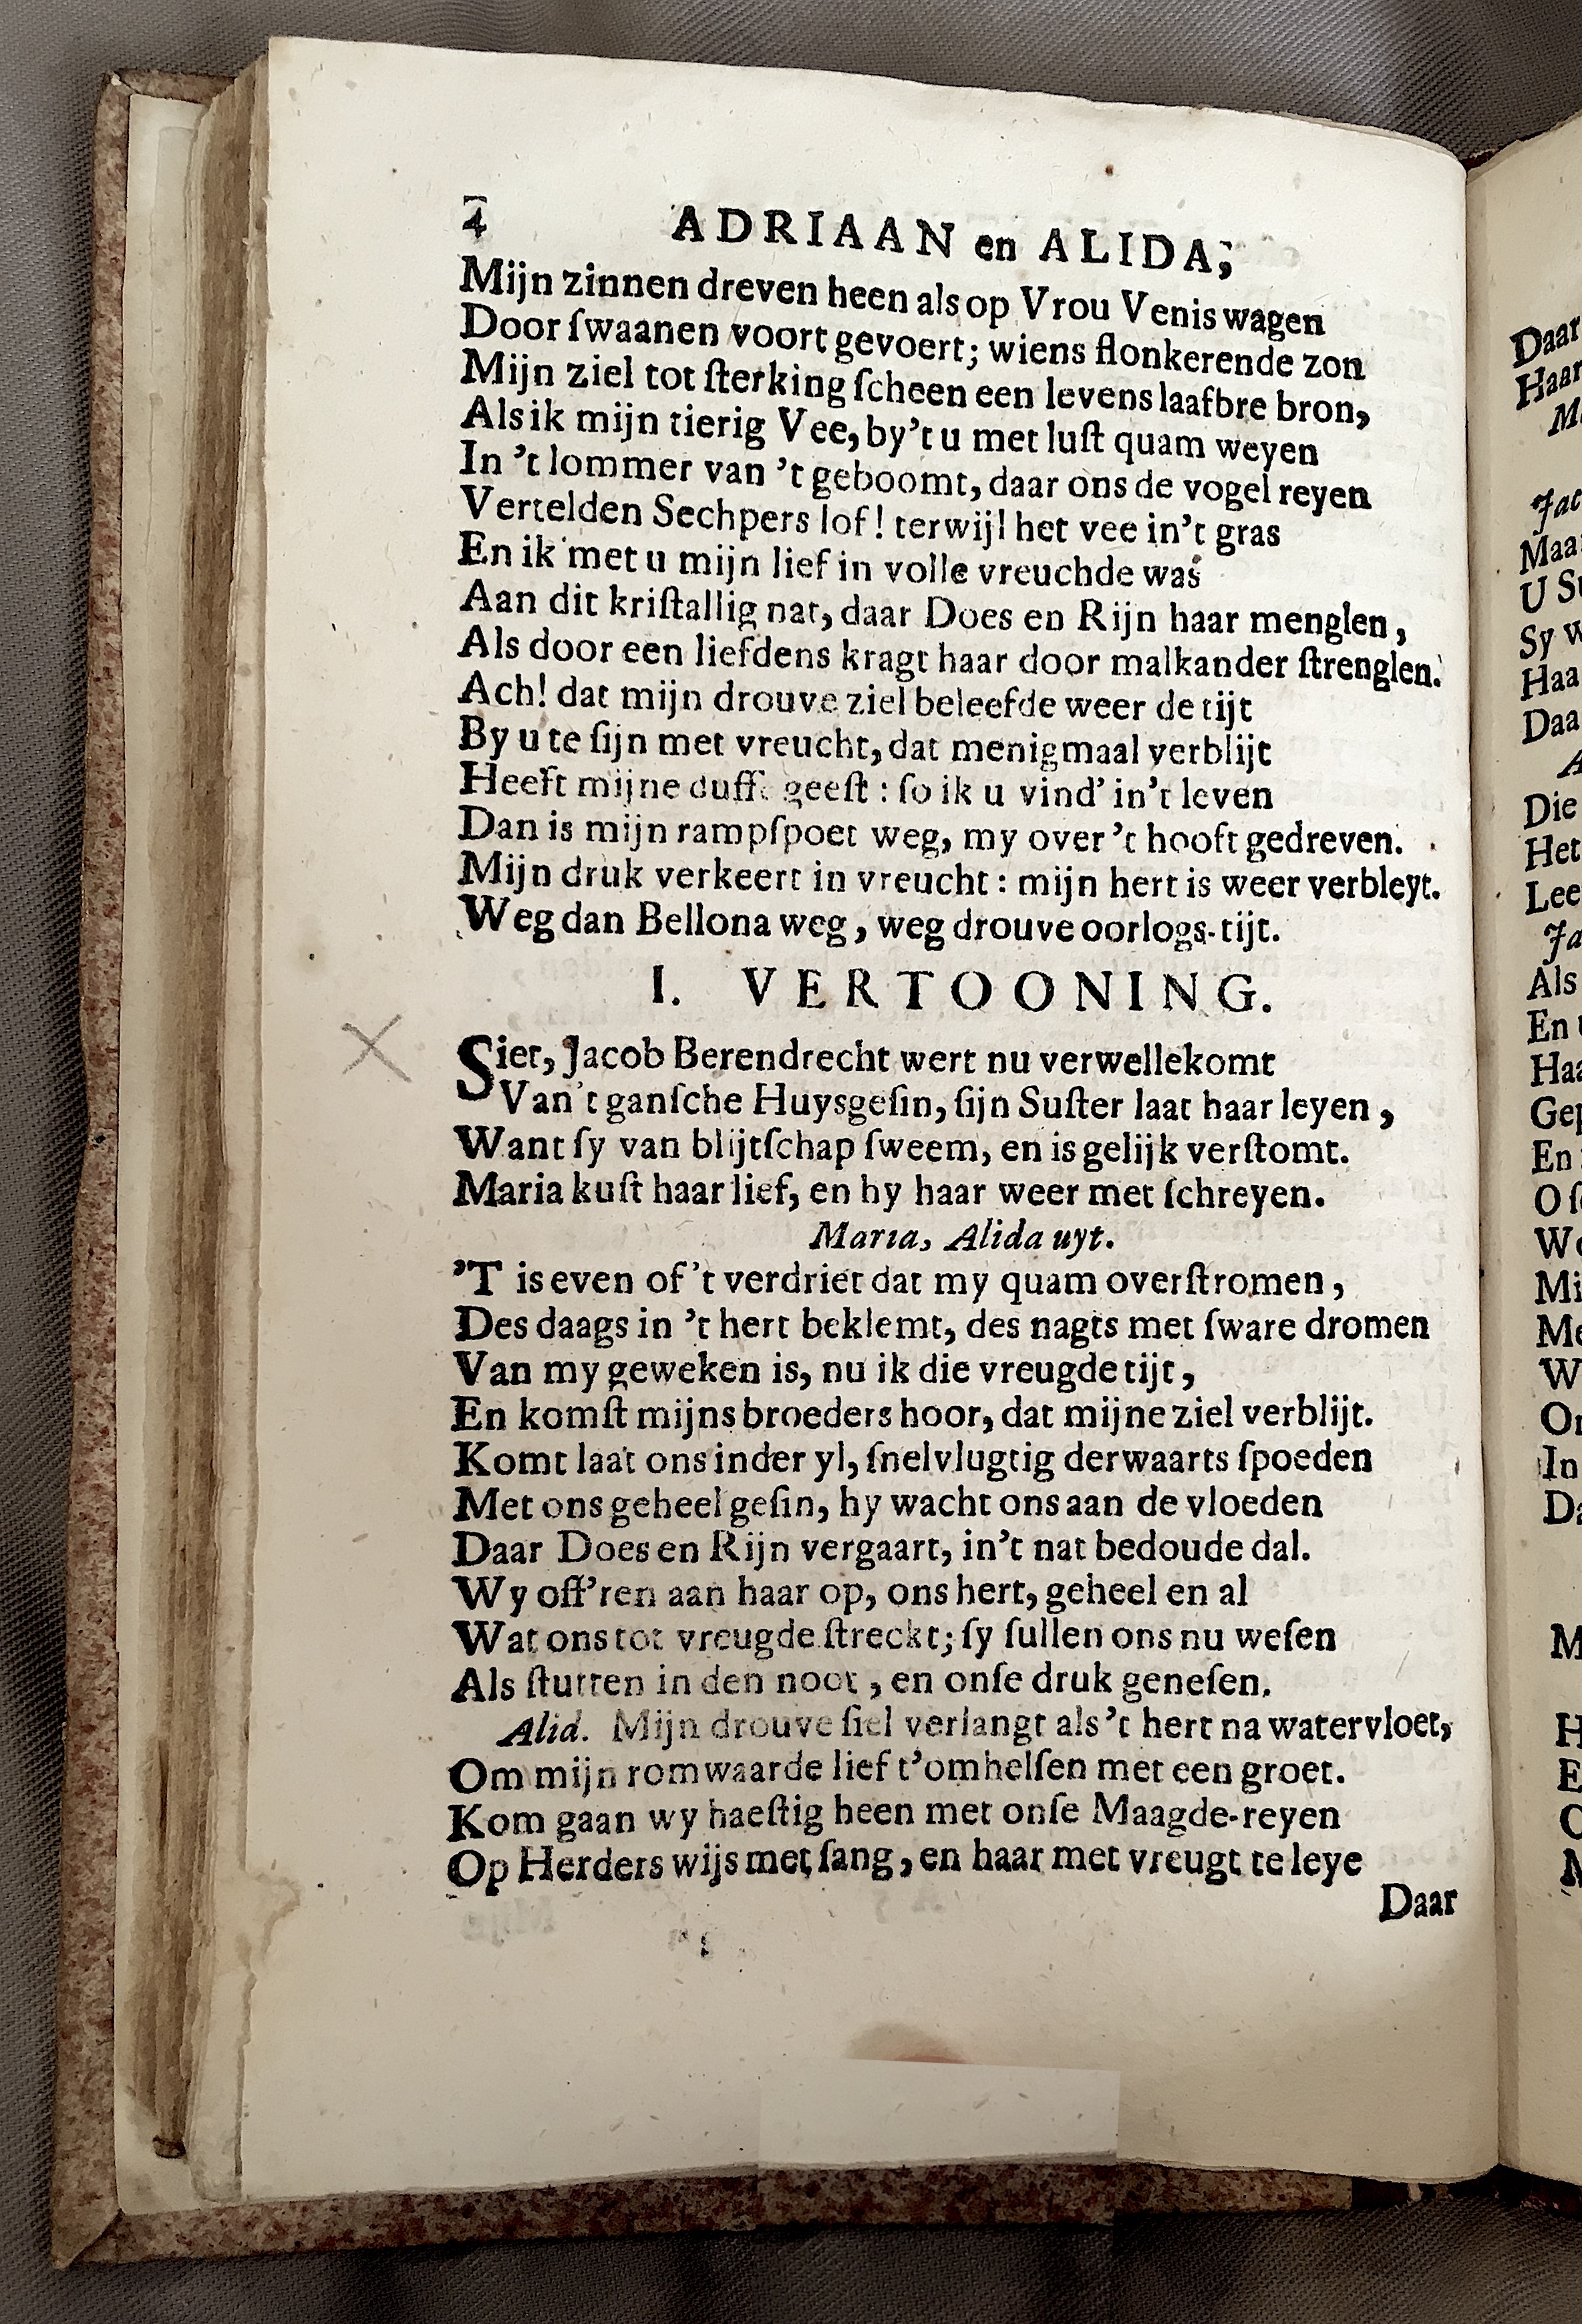 4 ADRIAAN en ALIDA;
Mijn zinnen dreven heen als op Vrou Venis wagen
Door ſwaanen voort gevoert; wiens flonkerende zon
Mijn ziel tot ſterking ſcheen een levens laafbre bron,
Als ik mijn tierig Vee, by't u met luſt quam weyen
In 't lommer van 't geboomt, daar ons de vogel reyen
Vertelden Sechpers lof! terwijl het vee in't gras
En ik met u mijn lief in volle vreuchde was
Aan dit kriſtallig nat, daar Does en Rijn haar menglen,
Als door een liefdens kragt haar door malkander ſtrenglen.
Ach! dat mijn drouve ziel beleefde weer de tijt
By u te ſijn met vreucht, dat menigmaal verblijt
Heeft mijne duffe geeſt: ſo ik u vind' in't leven
Dan is mijn rampſpoet weg, my over 't hooft gedreven.
Mijn druk verkeert in vreucht: mijn hert is weer verbleyt.
Weg dan Bellona weg, weg drouve oorlogs-tijt.
I. VERTOONING.
Siet, Jacob Berendrecht wert nu verwellekomt
Van't ganſche Huysgeſin, ſijn Suſter laat haar leyen,
Want ſy van blijtſchap ſweem, en is gelijk verſtomt.
Maria kuſt haar lief, en hy haar weer met ſchreyen.
Maria, Alida uyt.
'T is even of 't verdriet dat my quam overſtromen,
Des daags in 't hert beklemt, des nagts met ſware dromen
Van my geweken is, nu ik die vreugde tijt,
En komſt mijns broeders hoor, dat mijne ziel verblijt.
Komt laat ons inder yl, ſnelvlugtig derwaarts ſpoeden
Met ons geheel geſin, hy wacht ons aan de vloeden
Daar Does en Rijn vergaart, in't nat bedoude dal.
Wy off'ren aan haar op, ons hert, geheel en al
Wat ons tot vreugde ſtreckt; ſy ſullen ons nu weſen
Als ſtutten in den noot, en onſe druk geneſen.
Alid. Mijn drouve ſiel verlangt als 't hert na watervloet,
Om mijn romwaarde lief t'omhelſen met een groet.
Kom gaan wy haeſtig heen met onſe Maagde-reyen
Op Herders wijs met ſang, en haar met vreugt te leye
Daar